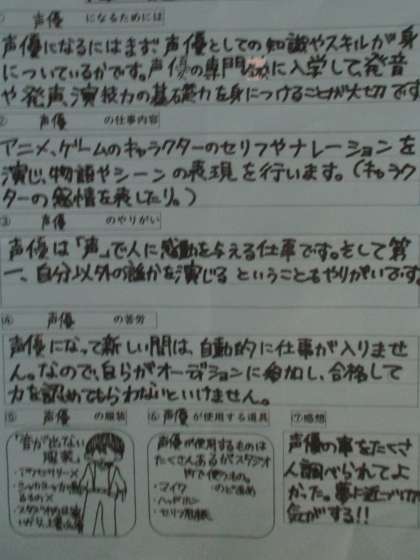 ① 声優 になるためには
声優になるにはまず声優としての知識やスキルが身
についているかです。声優の専門に入学して、発音
や発声、演技力の基礎力を身につけることが大切です
② 声優 の仕事内容
アニメ、ゲームのキャラクターのセリフやナレーションを
演じ、物語やシーンの表現を行います。(キャラク
ターの感情を表したり。)
③ 声優 のやりがい
声優は「声」で人に感動を与える仕事です。そして第
一、自分以外の誰かを演じるということもやりがいです。
④ 声優 の苦労
声優になって新しい間は、自動的に仕事が入りませ
ん。なので、自らがオーディションに参加し、合格して
力を認めてもらわないといけません。
⑤ 声優 の服装
「音が出ない
服装」
・アクセサリー×
・スタジオ内は
⑥ 声優が使用する道具
声優が使用するものは
たくさんあるがスタジオ
内で使うもの。
・マイク
・のど
・ヘッドホン
・セリフ用紙
⑦感想
声優の事をたくさ
ん調べられてよ
かった。夢に近づけた
気がする!!